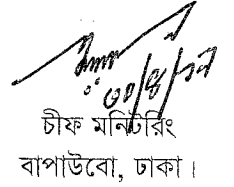 চীফ মনিটরিং
বাপাউবো, ঢাকা।